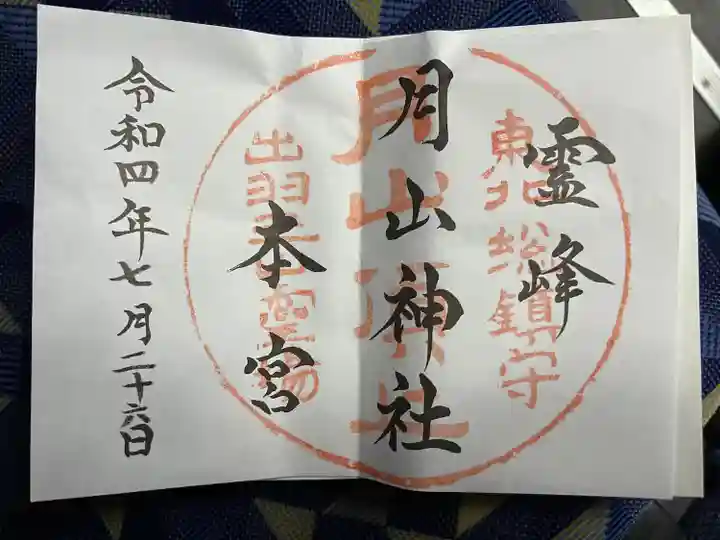 霊峰
東北総鎮守
月山神社
月山頂上
本宮
出羽三山霊場
令和四年七月二十六日